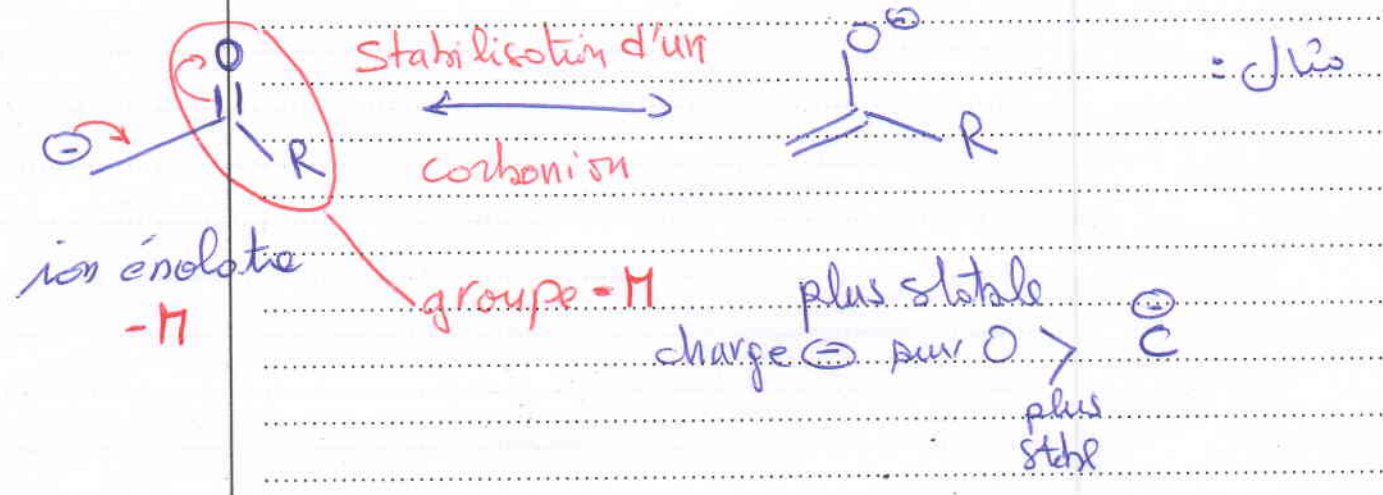 O
Stabilisation d'un
O⊖
مثال :
⊖
R
carbonion
R
ion énolate
-M
groupe -M
plus stable
charge ⊖ sur O > C⊖
plus
stable